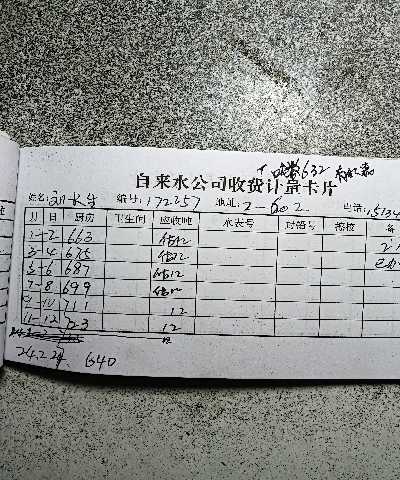 632
自来水公司收费计量卡片
姓名: 编号: 172257 地址: 2-602 电话: 15134
月 日 厨房 卫生间 应收吨 水表号 封铅号 撤校 备
1-2 663 估12
3-4 675 估12
5-6 687 估12
7-8 699 估12
9-10 711 12
11-12 723 12
24.2.24 640